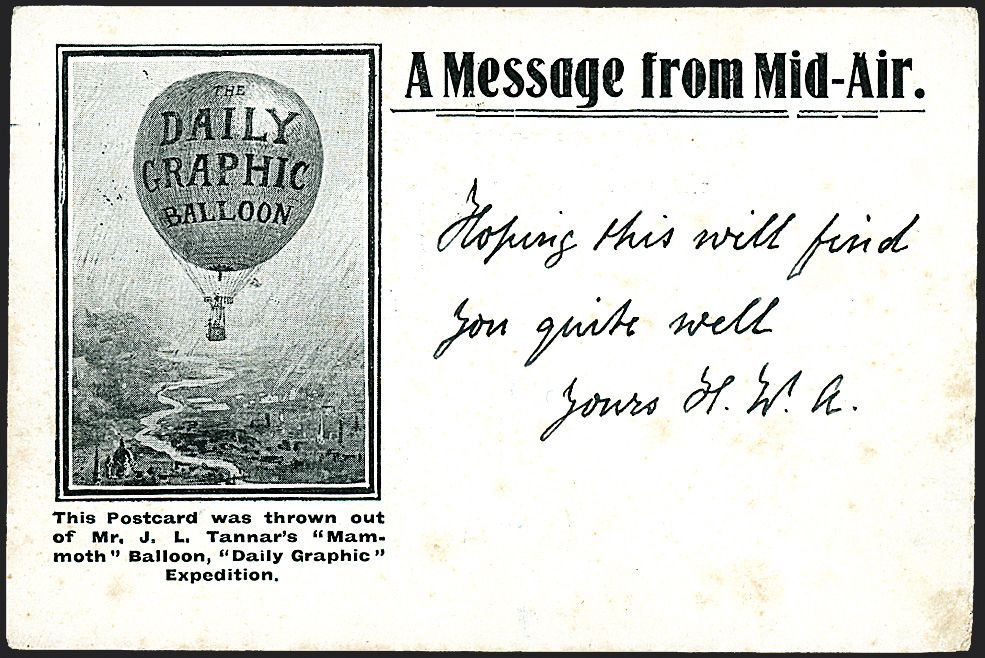 A Message from Mid-Air.
THE
DAILY
GRAPHIC
BALLOON
Hoping this will find
you quite well
Yours H. W. A.
This Postcard was thrown out
of Mr. J. L. Tannar's "Mam-
moth" Balloon, "Daily Graphic"
Expedition.